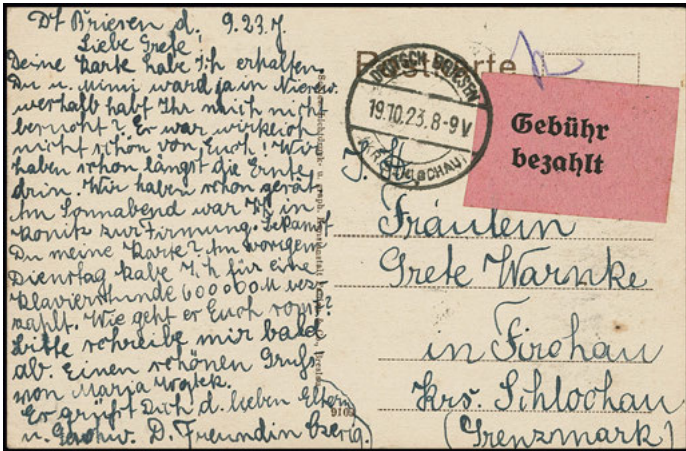 Dt Brieren d. 9.23.
Liebe Grete!
Deine Karte habe ich erhalten.
Du u. Mimi ward ja in
weshalb habt Ihr mich nicht
besucht? Es war wirklich
nicht schön von Euch! Wir
haben schon längst die Ernte
drin. Wir haben schon gesät.
Am Sonnabend war ich in
Konitz zur Firmung. Bekamst
Du meine Karte? Am vorigen
Dienstag habe ich für eine
Klavierstunde 600000M bez
zahlt. Wie geht es Euch sonst?
Bitte schreibe mir bald
ab. Einen schönen Gruß
von Maria
Es grüßt Dich d. lieben Eltern
u. Geschw. D. Freundin
Postkarte
DEUTSCH BRIESEN
19.10.23.8-9V
(KR. SCHLOCHAU)
Gebühr
bezahlt
Fräulein
Grete Warnke
in Firchau
Krs. Schlochau
(Grenzmark)